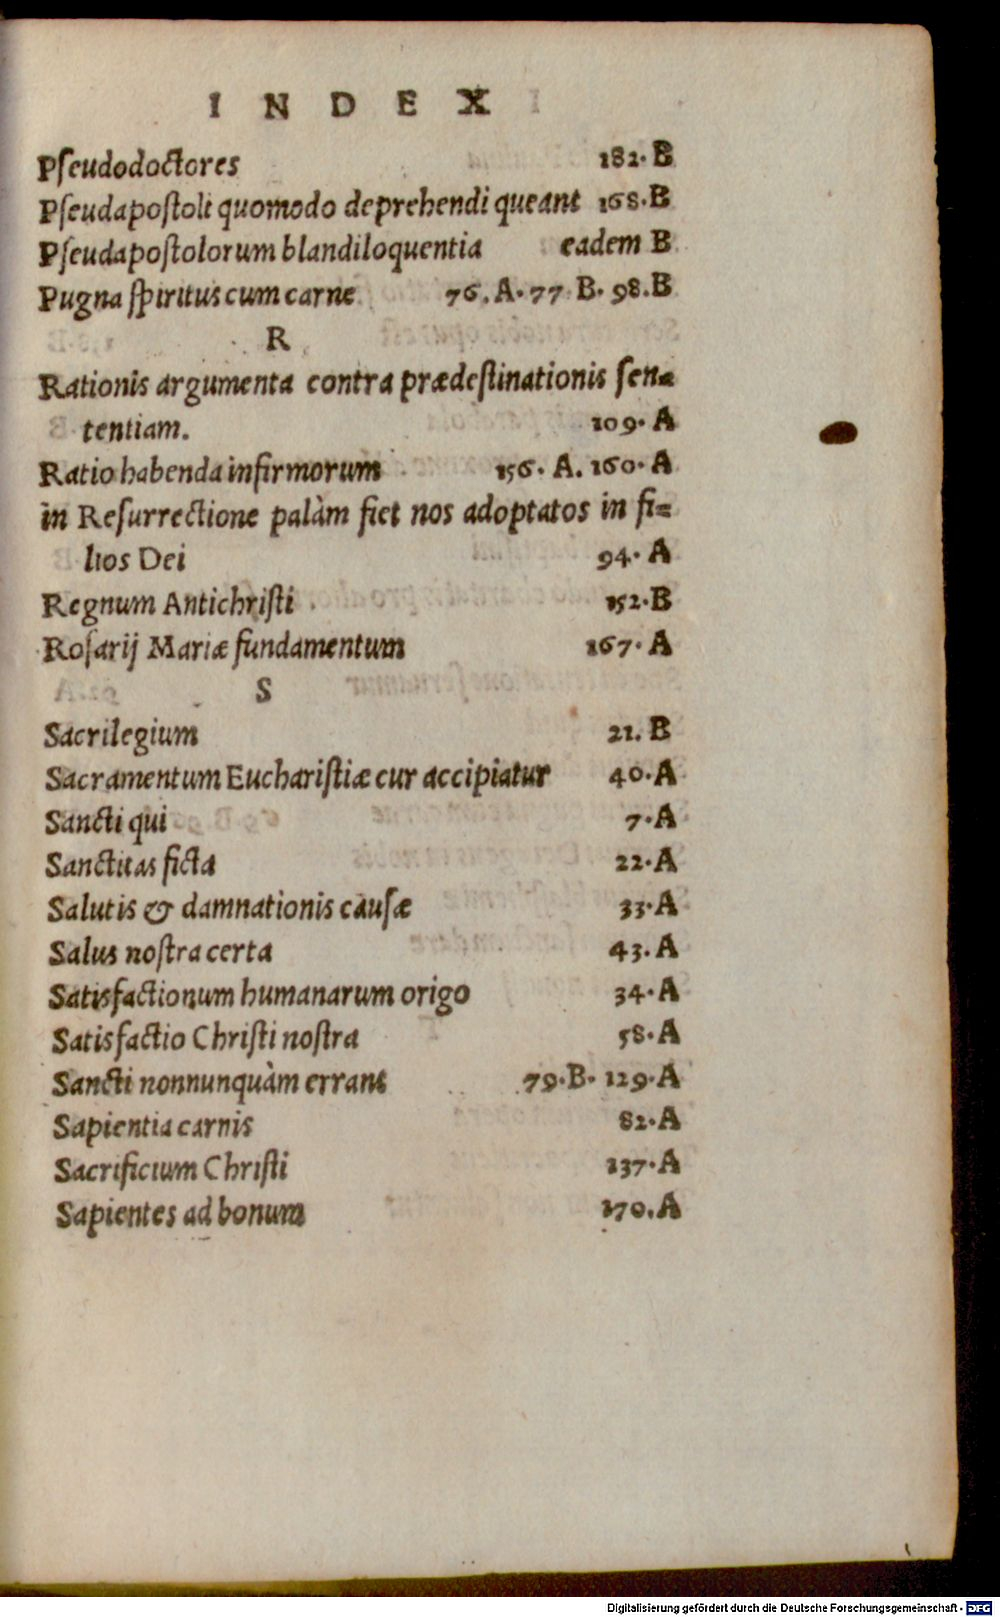 INDEX
Pſeudodoctores 182. B
Pſeudapoſtoli quomodo deprehendi queant 168. B
Pſeudapoſtolorum blandiloquentia eadem B
Pugna ſpiritus cum carne 76. A. 77 B. 98. B
R
Rationis argumenta contra prædeſtinationis ſen=
tentiam. 109. A
Ratio habenda infirmorum 156. A. 160. A
in Reſurrectione palàm fiet nos adoptatos in fi=
lios Dei 94. A
Regnum Antichriſti 152. B
Roſarij Mariæ fundamentum 167. A
S
Sacrilegium 21. B
Sacramentum Euchariſtiæ cur accipiatur 40. A
Sancti qui 7. A
Sanctitas ficta 22. A
Salutis & damnationis cauſæ 33. A
Salus noſtra certa 43. A
Satisfactionum humanarum origo 34. A
Satisfactio Chriſti noſtra 58. A
Sancti nonnunquàm errant 79. B. 129. A
Sapientia carnis 82. A
Sacrificium Chriſti 137. A
Sapientes ad bonum 170. A
Digitalisierung gefördert durch die Deutsche Forschungsgemeinschaft - DFG